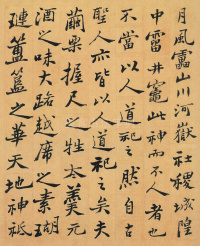 月風雷山川河嶽社稷城隍
中霤井竈此神而不人者也
不當以人道祀之然自古
聖人亦皆以人道祀之矣夫
繭栗握尺之牲太羹元
酒之味大路越席之素瑚
璉簠簋之華天地神祇